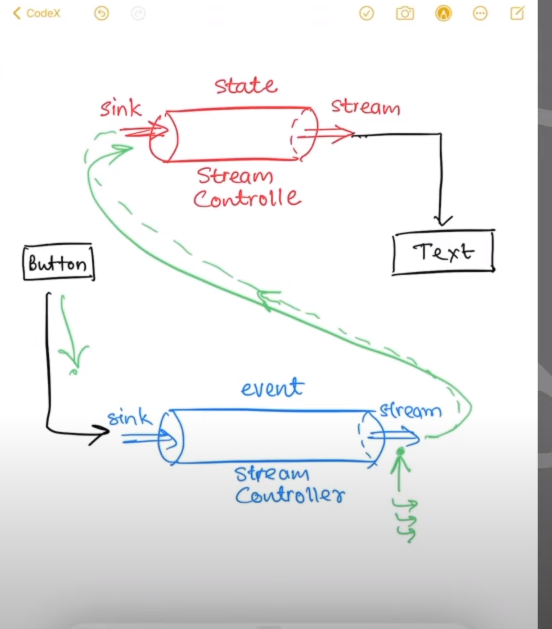 CodeX
state
sink
stream
Stream
Controlle
Button
Text
event
sink
stream
Stream
Controller